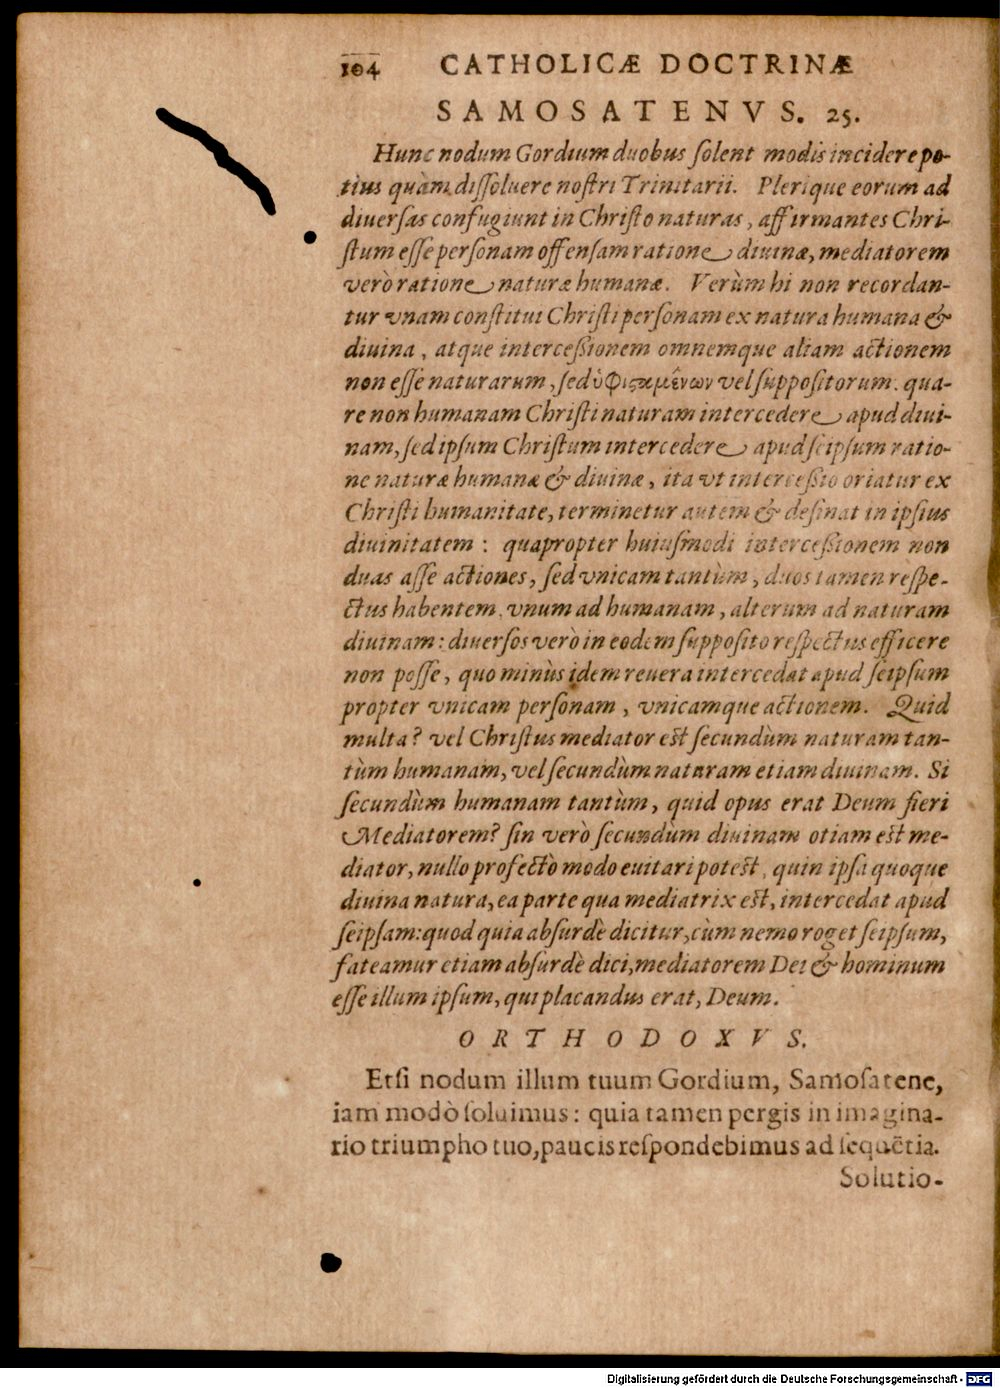 104 CATHOLICÆ DOCTRINÆ
SAMOSATENVS. 25.
Hunc nodum Gordium duobus ſolent modis incidere po-
tius quàm diſſoluere noſtri Trinitarii. Plerique eorum ad
diuerſas confugiunt in Chriſto naturas, affirmantes Chri-
ſtum eſſe perſonam offenſam ratione diuinæ, mediatorem
verò ratione naturæ humanæ. Verùm hi non recordan-
tur vnam conſtitui Chriſti perſonam ex natura humana &
diuina, atque interceßionem omnemque aliam actionem
non eſſe naturarum, ſed ὑφιςαμένων vel ſuppoſitorum: qua-
re non humanam Chriſti naturam intercedere apud diui-
nam, ſed ipſum Chriſtum intercedere apud ſeipſum ratio-
ne naturæ humanæ & diuinæ, ita vt interceßio oriatur ex
Chriſti humanitate, terminetur autem & deſinat in ipſius
diuinitatem: quapropter huiuſmodi interceßionem non
duas aſſe actiones, ſed vnicam tantùm, duos tamen reſpe-
ctus habentem, vnum ad humanam, alterum ad naturam
diuinam: diuerſos verò in eodem ſuppoſito reſpectus efficere
non poſſe, quo minùs idem reuera intercedat apud ſeipſum
propter vnicam perſonam, vnicamque actionem. Quid
multa? vel Chriſtus mediator eſt ſecundùm naturam tan-
tùm humanam, vel ſecundùm naturam etiam diuinam. Si
ſecundùm humanam tantùm, quid opus erat Deum fieri
Mediatorem? ſin verò ſecundùm diuinam otiam eſt me-
diator, nullo profectò modo euitari poteſt, quin ipſa quoque
diuina natura, ea parte qua mediatrix eſt, intercedat apud
ſeipſam: quod quia abſurdè dicitur, cùm nemo roget ſeipſum,
fateamur etiam abſurdè dici, mediatorem Dei & hominum
eſſe illum ipſum, qui placandus erat, Deum.
ORTHODOXVS.
Etſi nodum illum tuum Gordium, Samoſatene,
iam modò ſoluimus: quia tamen pergis in imagina-
rio triumpho tuo, paucis reſpondebimus ad ſequētia.
Solutio-
Digitalisierung gefördert durch die Deutsche Forschungsgemeinschaft - DFG